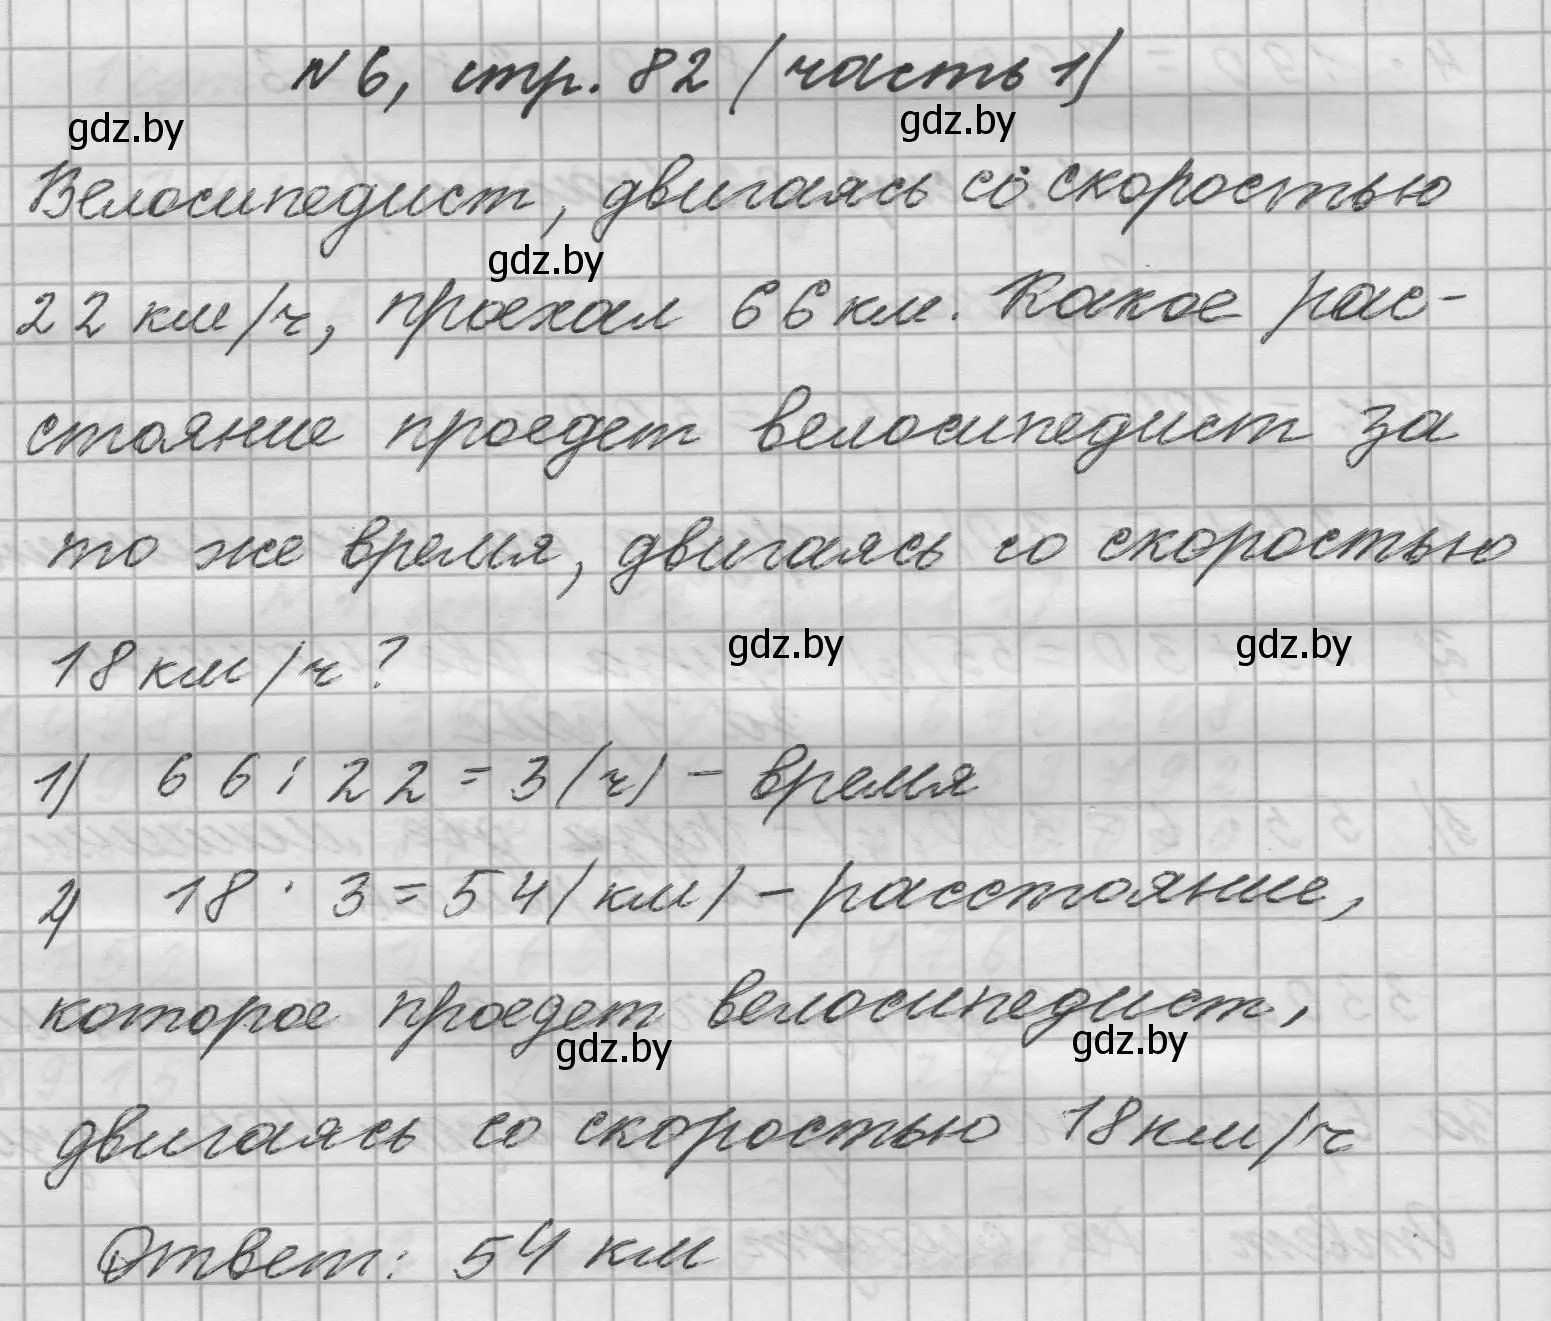 №6, стр. 82 (часть 1)
gdz.by gdz.by
Велосипедист, двигаясь со скоростью
gdz.by
22 км/ч, проехал 66 км. Какое рас-
стояние проедет велосипедист за
то же время, двигаясь со скоростью
18 км/ч?
gdz.by gdz.by
1) 66:22=3(ч) - время
2) 18·3=54(км) - расстояние,
которое проедет велосипедист,
gdz.by gdz.by
двигаясь со скоростью 18 км/ч
Ответ: 54 км